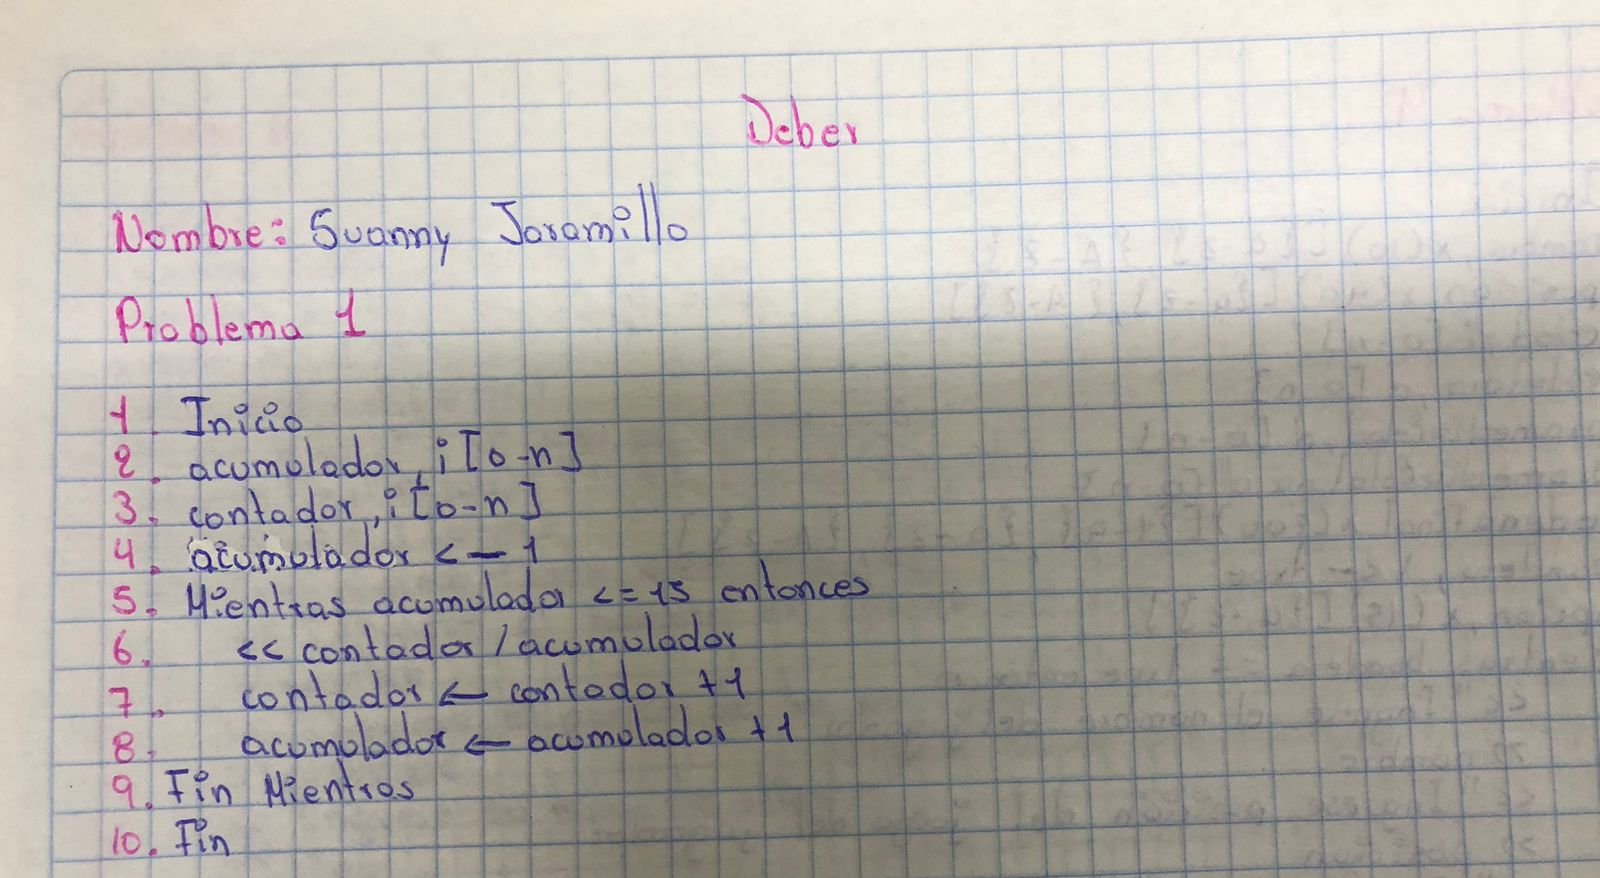 Deber
Nombre: Suanny Jaramillo
Problema 1
1. Inicio
2. acumulador, i [0-n]
3. contador, i [0-n]
4. acumulador <- 1
5. Mientras acumulador <= 15 entonces
6. << contador / acumulador
7. contador <- contador +1
8. acumulador <- acumulador +1
9. Fin Mientras
10. Fin